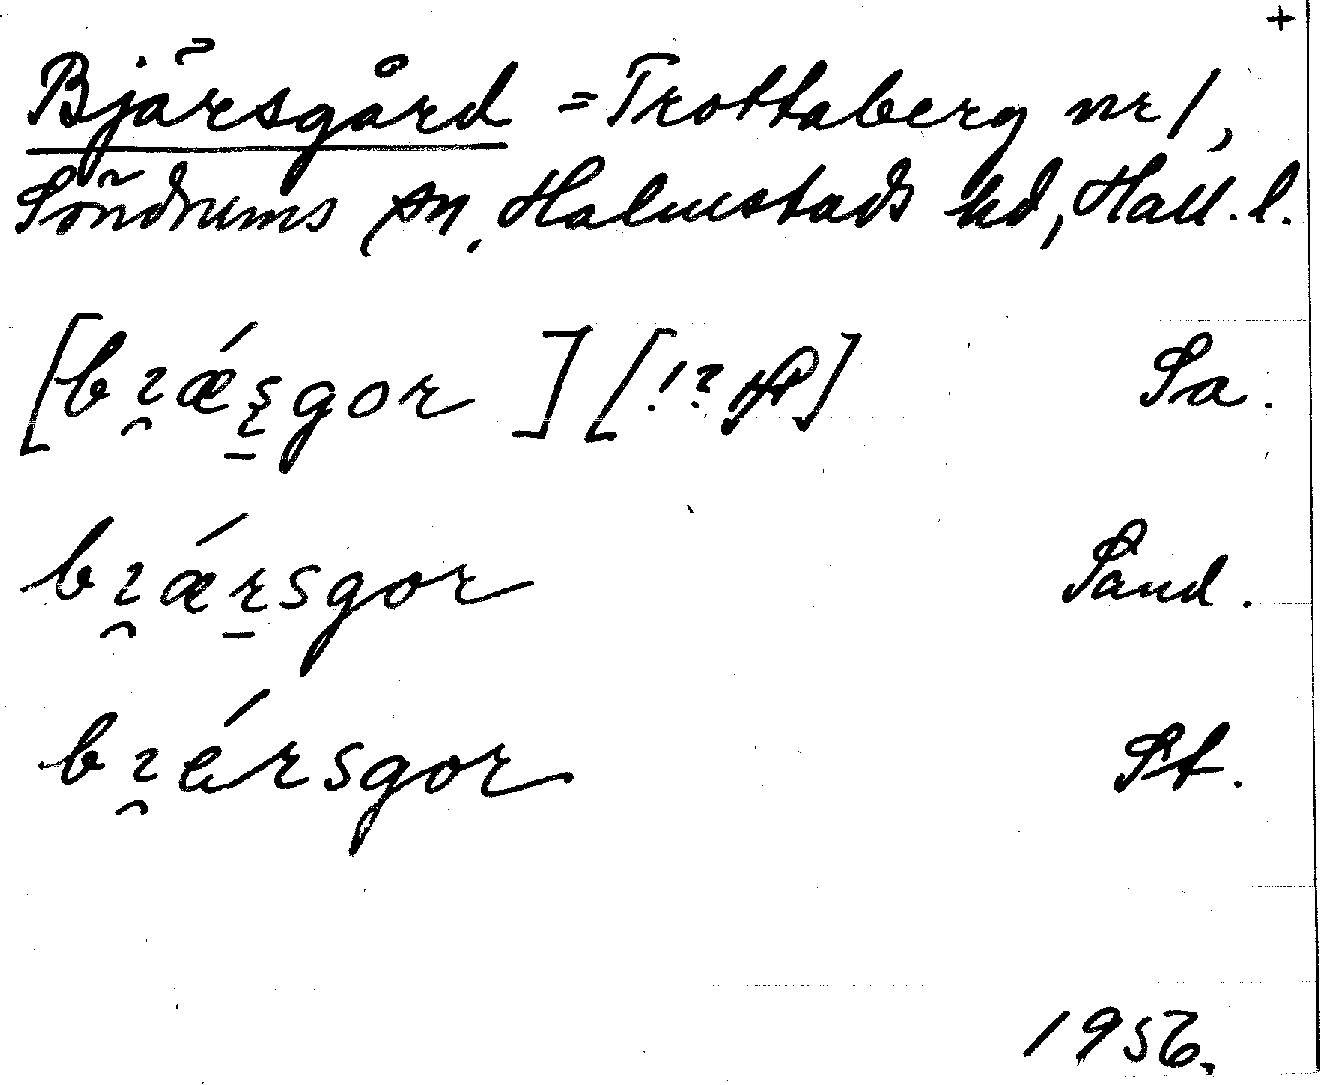 +
Bjärsgård = Trottaberg nr 1,
Söndrums sn, Halmstads hd, Hall. l.
[bɿ̯ǽşgor] [!? ] Sa.
bɿ̯ǽrsgor Sand.
bɿ̯érsgor St.
1956.